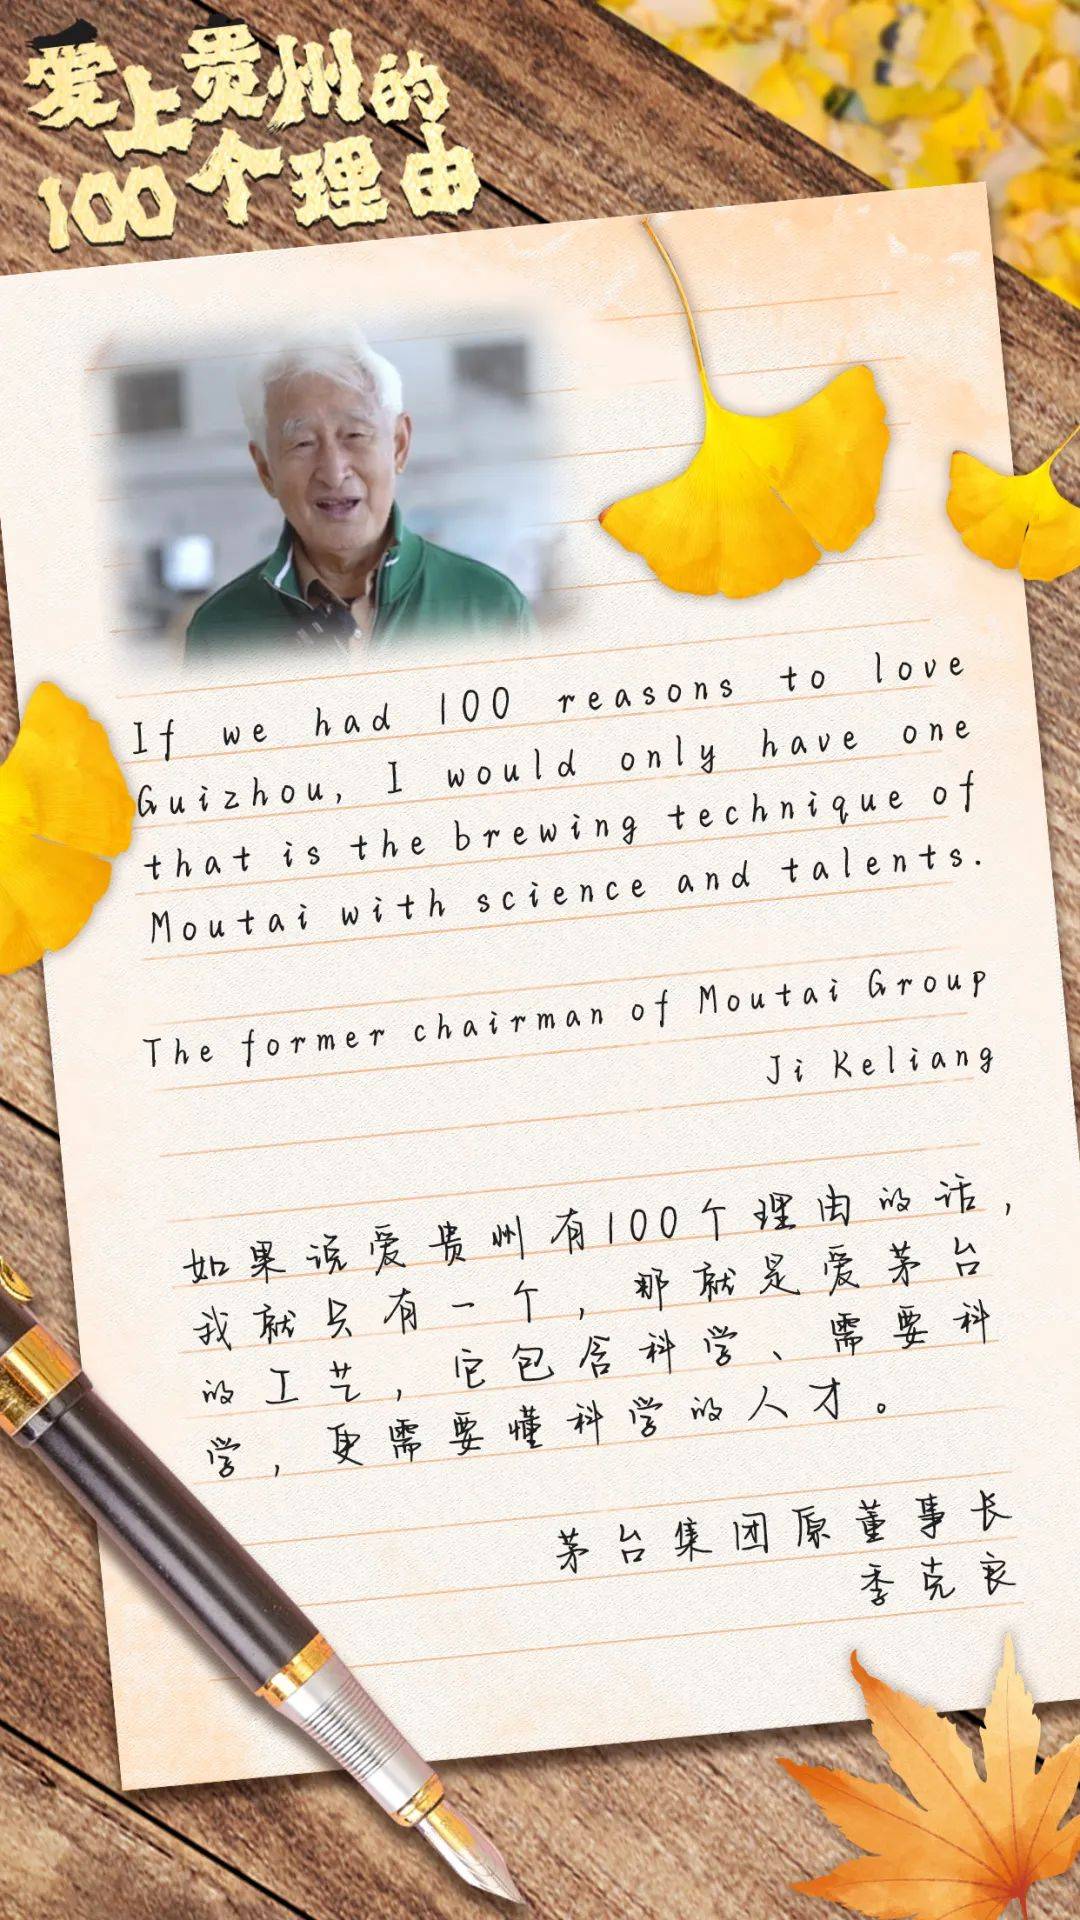 爱上贵州的
100个理由
If we had 100 reasons to love
Guizhou, I would only have one
that is the brewing technique of
Moutai with science and talents.
The former chairman of Moutai Group
Ji Keliang
如果说爱贵州有100个理由的话，
我就只有一个，那就是爱茅台
的工艺，它包含科学、需要科
学，更需要懂科学的人才。
茅台集团原董事长
季克良